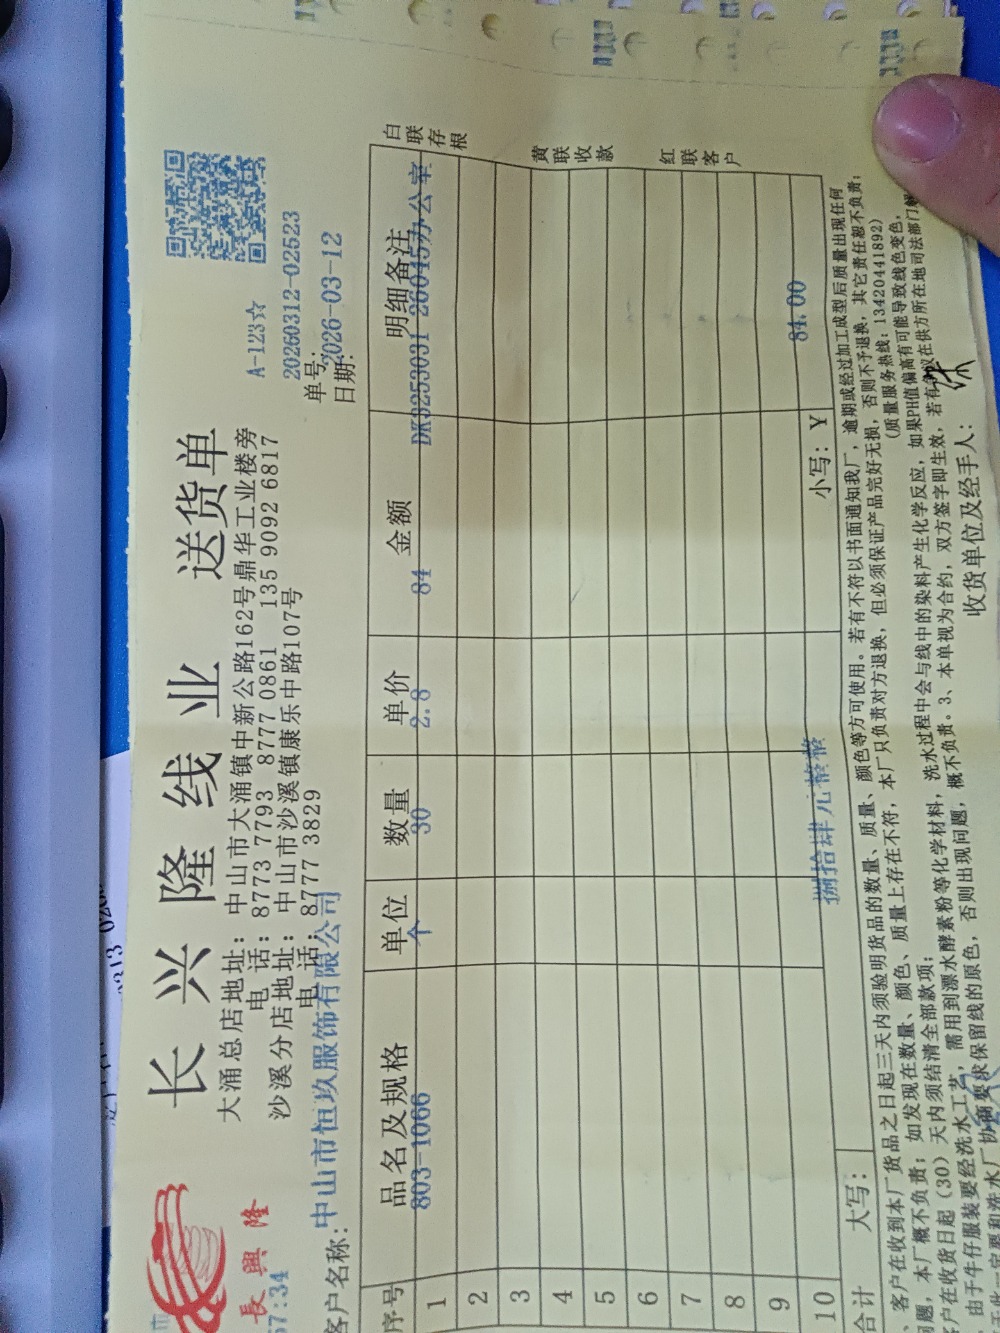 長興隆
57:34
长兴隆线业 送货单
A-123☆
大涌总店地址: 中山市大涌镇中新公路162号鼎华工业楼旁
电 话: 8773 7793 8777 0861 135 9092 6817
沙溪分店地址: 中山市沙溪镇康乐中路107号
电 话: 8777 3829
单号: 20260312-02523
日期: 2026-03-12
客户名称: 中山市恒玖服饰有限公司
序号 品名及规格 单位 数量 单价 金额 明细备注
1 803-1066 个 30 2.8 84 DK3253031 26045办公室
2
3
4
5
6
7
8
9
10
合计 大写: 捌拾肆元整整 小写: Y 84.00
白联存根
黄联收款
红联客户
、客户在收到本厂货品之日起三天内须验明货品的数量、质量、颜色等方可使用。若有不符以书面通知我厂, 逾期或经过加工成型后质量出现任何
问题, 本厂概不负责; 如发现在数量、颜色、质量上存在不符, 本厂只负责对方退换, 但必须保证产品完好无损, 否则不予退换, 其它责任恕不负责;
户在收货日起(30)天内须结清全部款项; (质量服务热线: 13420441892)
由于牛仔服装要经洗水工艺, 需用到漂水酵素粉等化学材料, 洗水过程中会与线中的染料产生化学反应, 如果PH值偏高有可能导致线色变色,
定要和洗水厂协商要求保留线的原色, 否则出现问题, 概不负责。3、本单视为合约, 双方签字即生效, 若有
议在供方所在地司法部门解
收货单位及经手人: